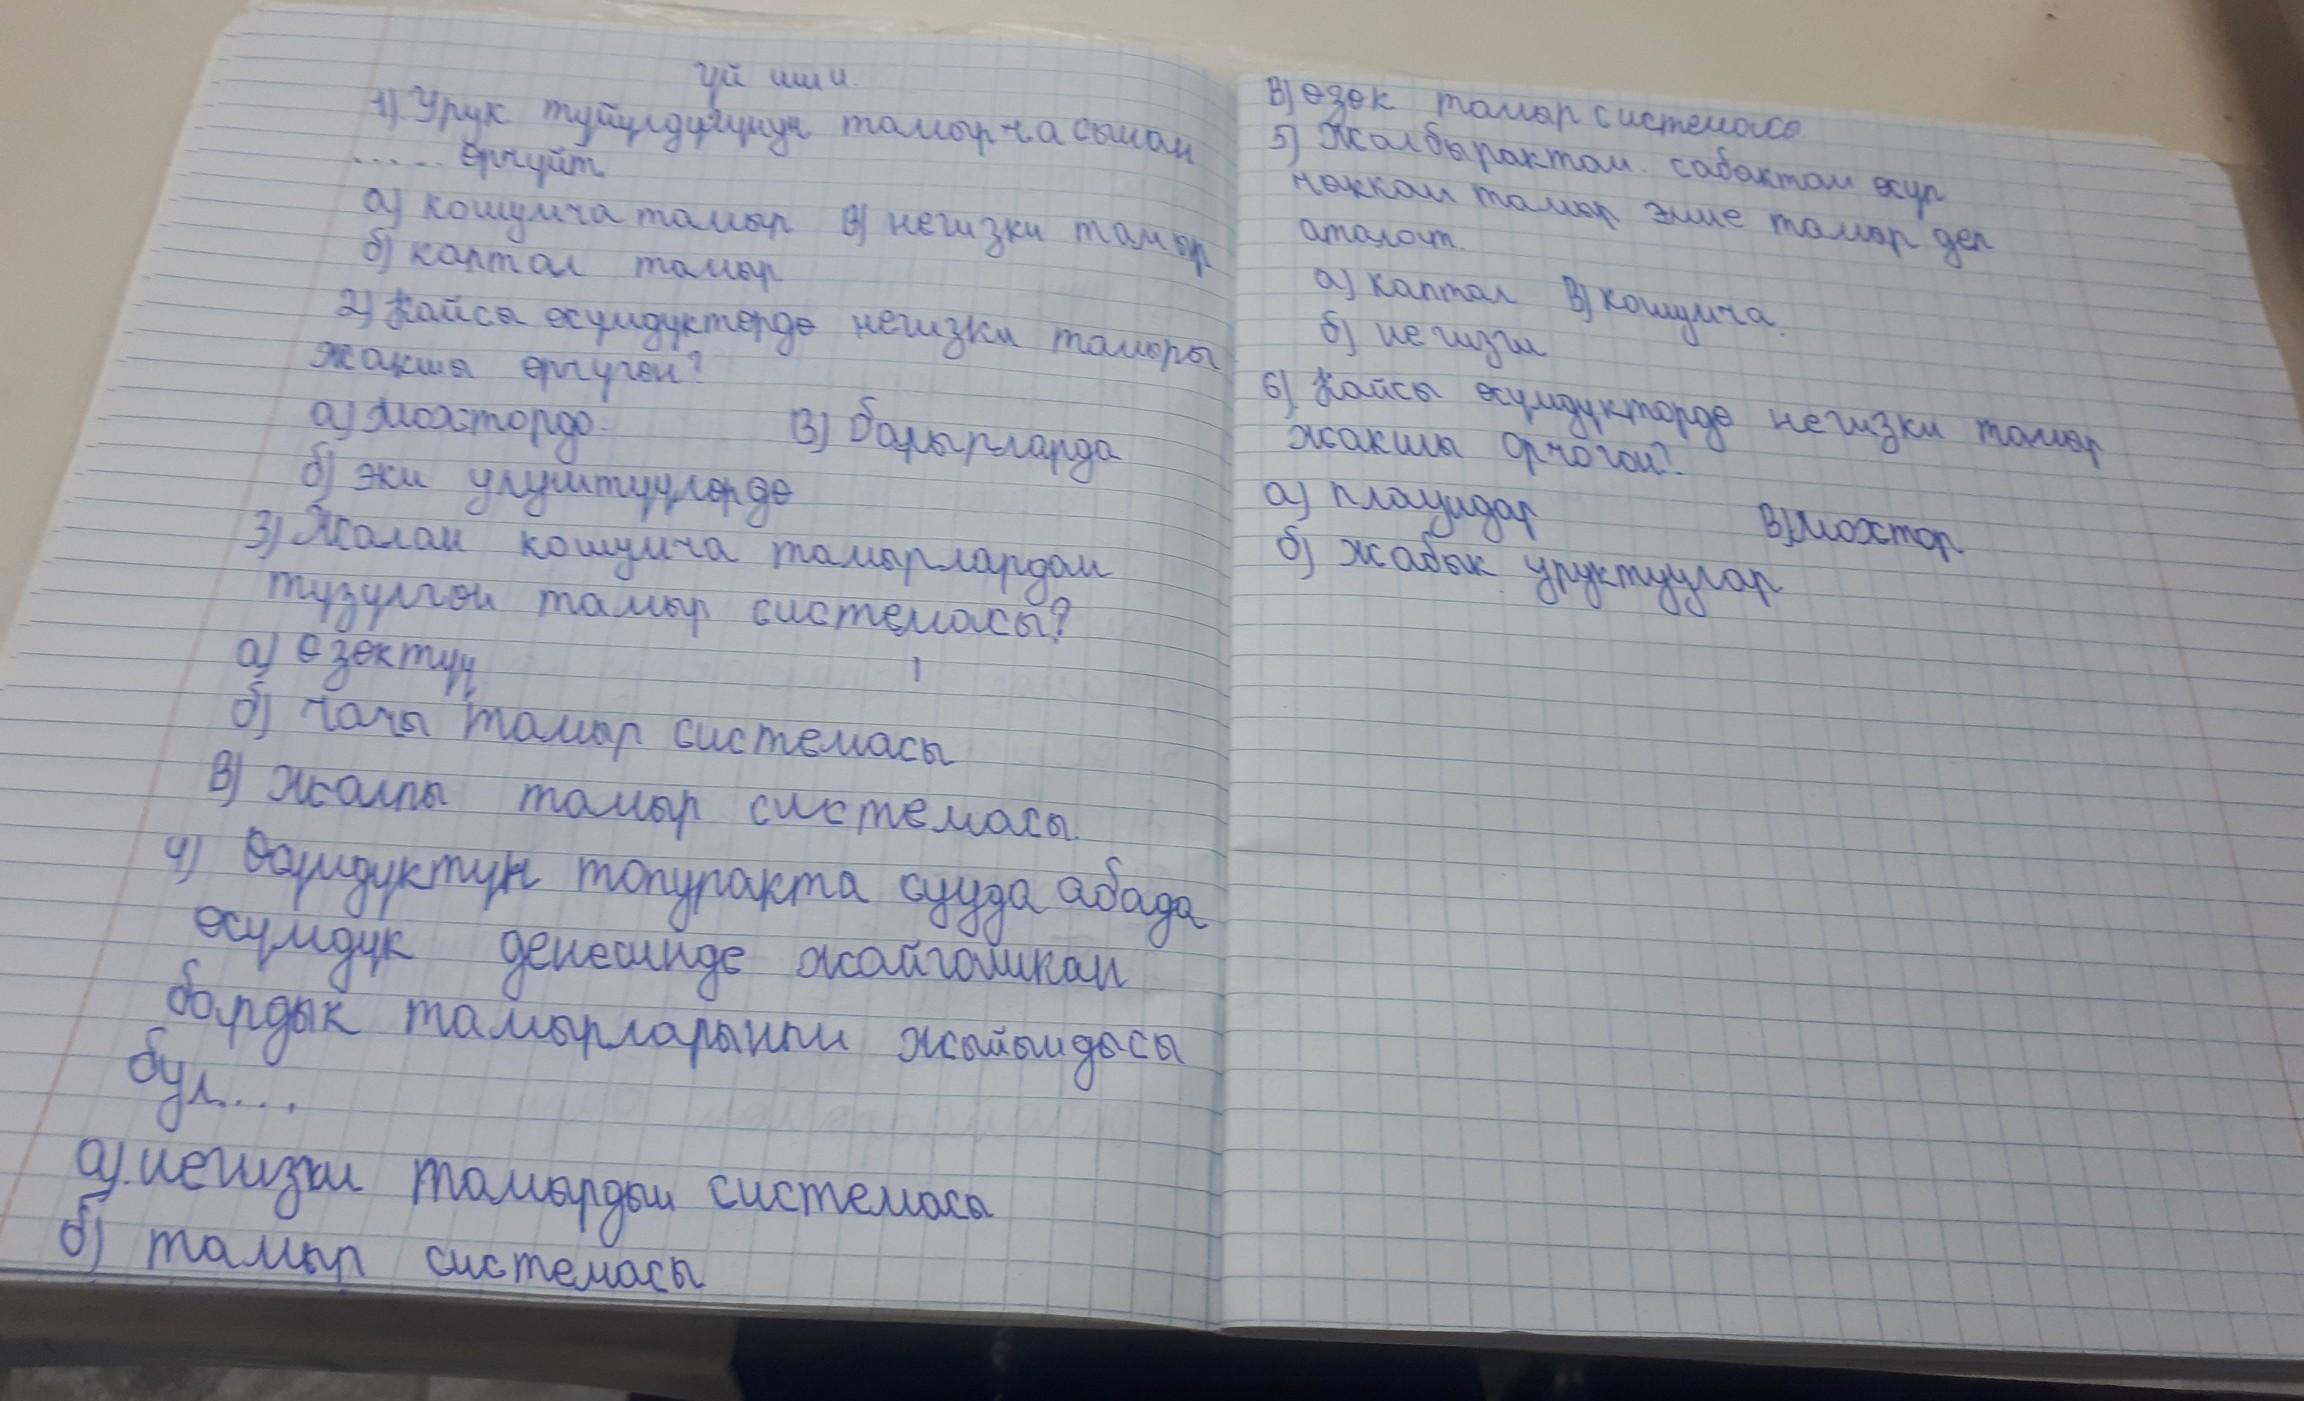 үй иши.
1) Урук түйүлдүгүнүн тамырчасынан
..... өрчүйт
а) кошумча тамыр в) негизки тамыр
б) каптал тамыр
2) Кайсы өсүмдүктөрдө негизки тамыры
жакшы өрчүгөн?
а) мохтордо. в) барырларда
б) эки үлүштүүлөрдө
3) Жалан кошумча тамырлардан
түзүлгөн тамыр системасы?
а) өзөктүү
б) чачы тамыр системасы
в) жалпы тамыр системасы.
4) Өсүмдүктүн топуракта сууда абада
өсүмдүк денесинде жайгашкан
бардык тамырларынын жыйындысы
бул....
а) негизки тамырдын системасы
б) тамыр системасы
в) өзөк тамыр системасы
5) Жалбырактан. сабактан өсүп
чыккан тамыр эмне тамыр деп
аталат.
а) каптал в) кошумча.
б) негизги
6) Кайсы өсүмдүктөрдө негизки тамыр
жакшы өрчөгөн?
а) плаундар в) мохтор
б) жабык уруктуулар